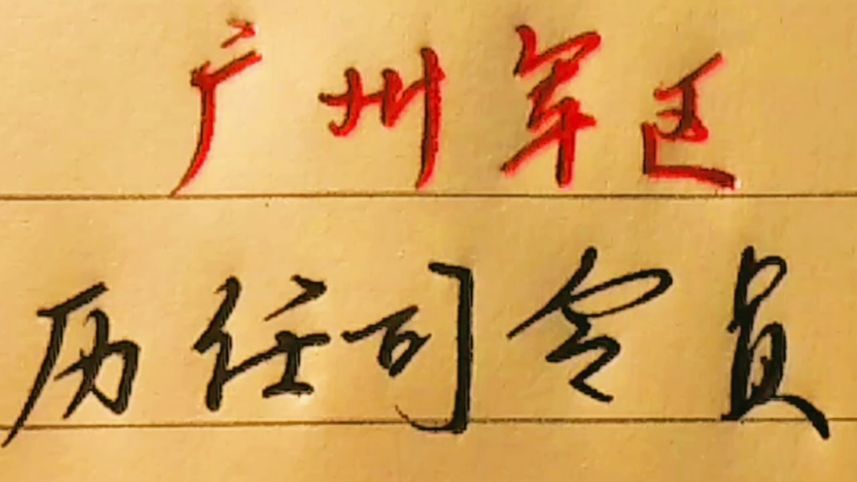 广州军区
历任司令员